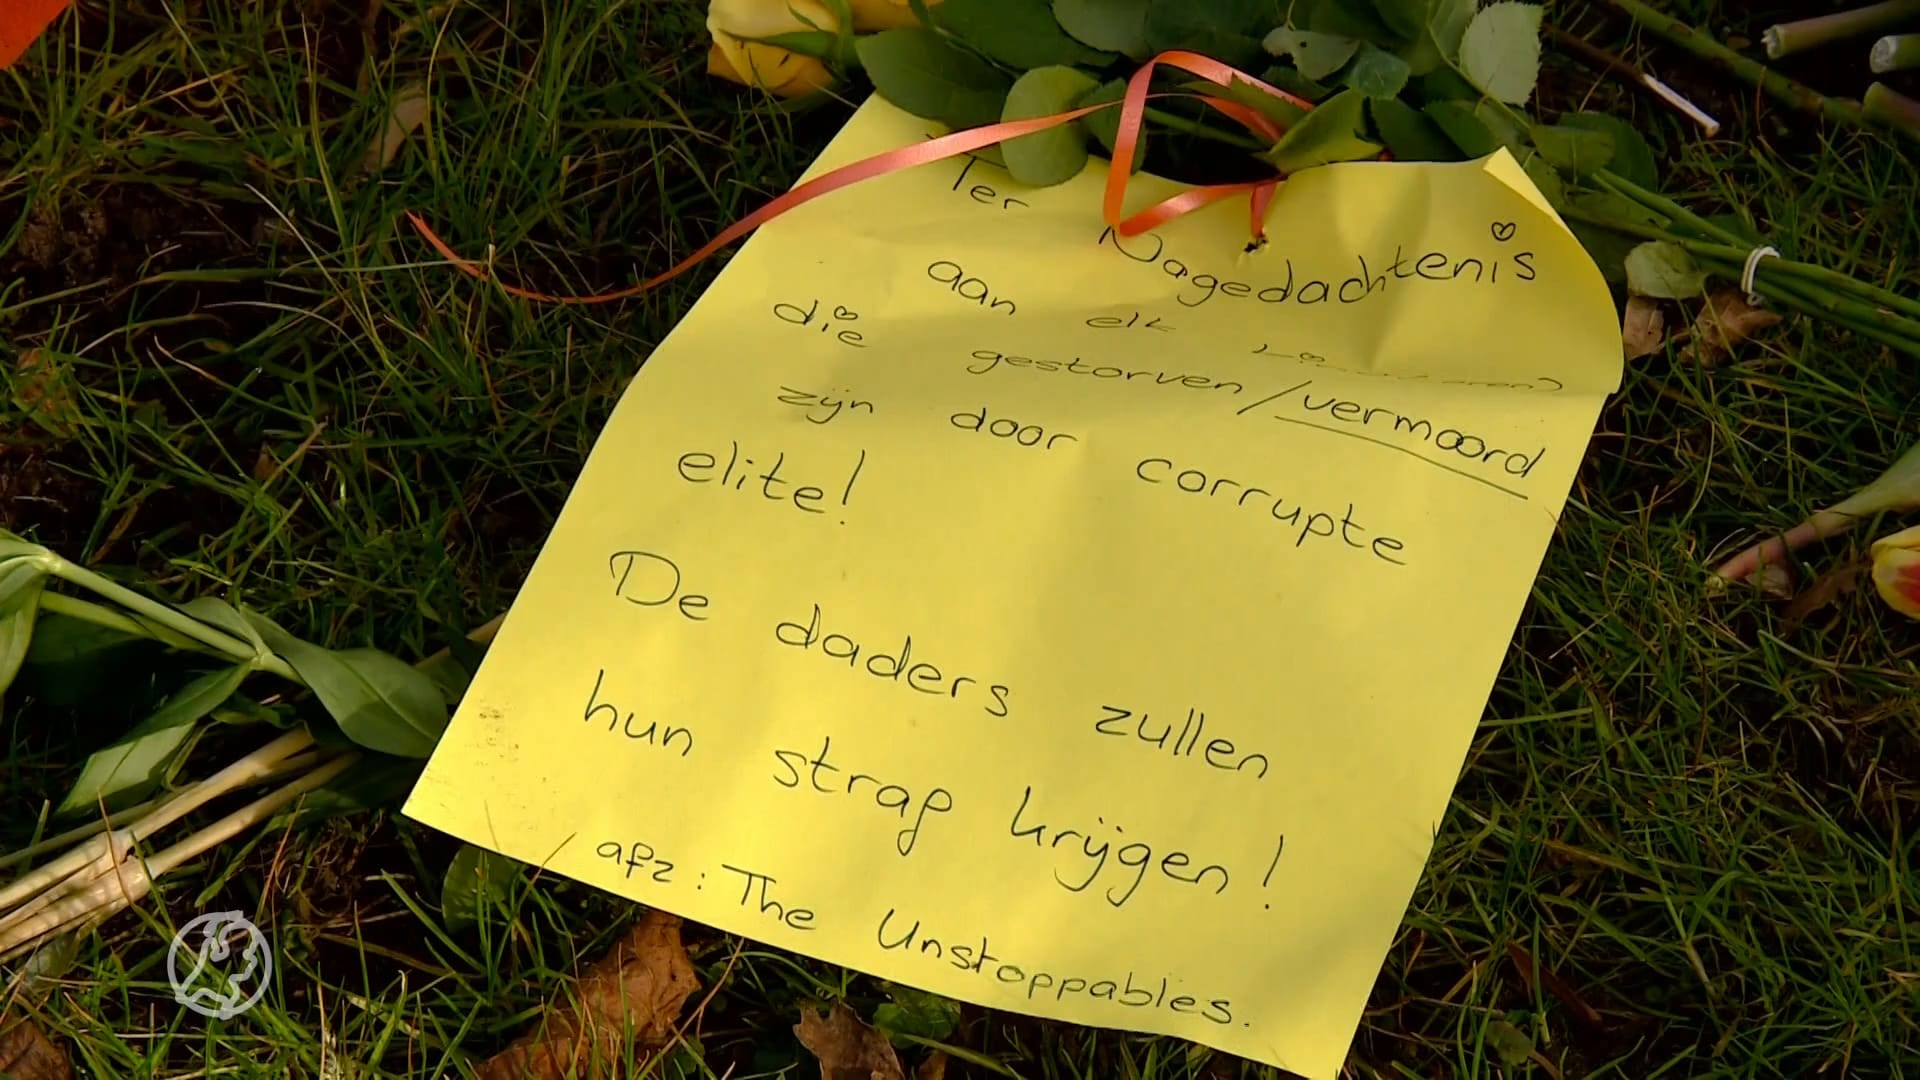 Ter Nagedachtenis
aan elk
die gestorven/vermoord
zijn door corrupte
elite!
De daders zullen
hun straf krijgen!
afz: The Unstoppables.